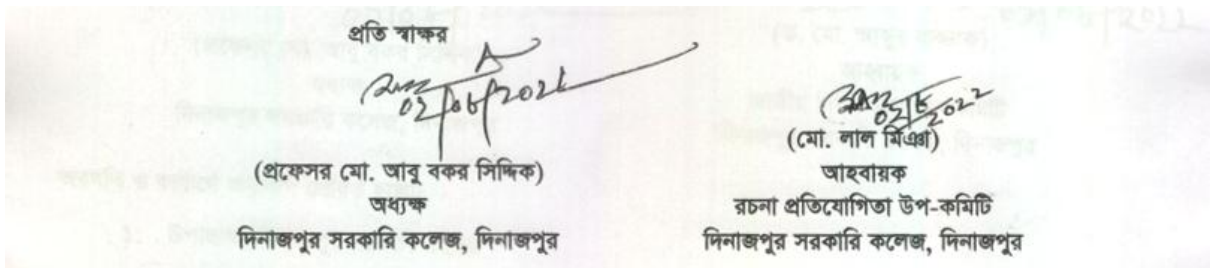 প্রতি স্বাক্ষর
02/08/2022
(প্রফেসর মো. আবু বকর সিদ্দিক)
অধ্যক্ষ
দিনাজপুর সরকারি কলেজ, দিনাজপুর
02/8/2022
(মো. লাল মিঞা)
আহবায়ক
রচনা প্রতিযোগিতা উপ-কমিটি
দিনাজপুর সরকারি কলেজ, দিনাজপুর